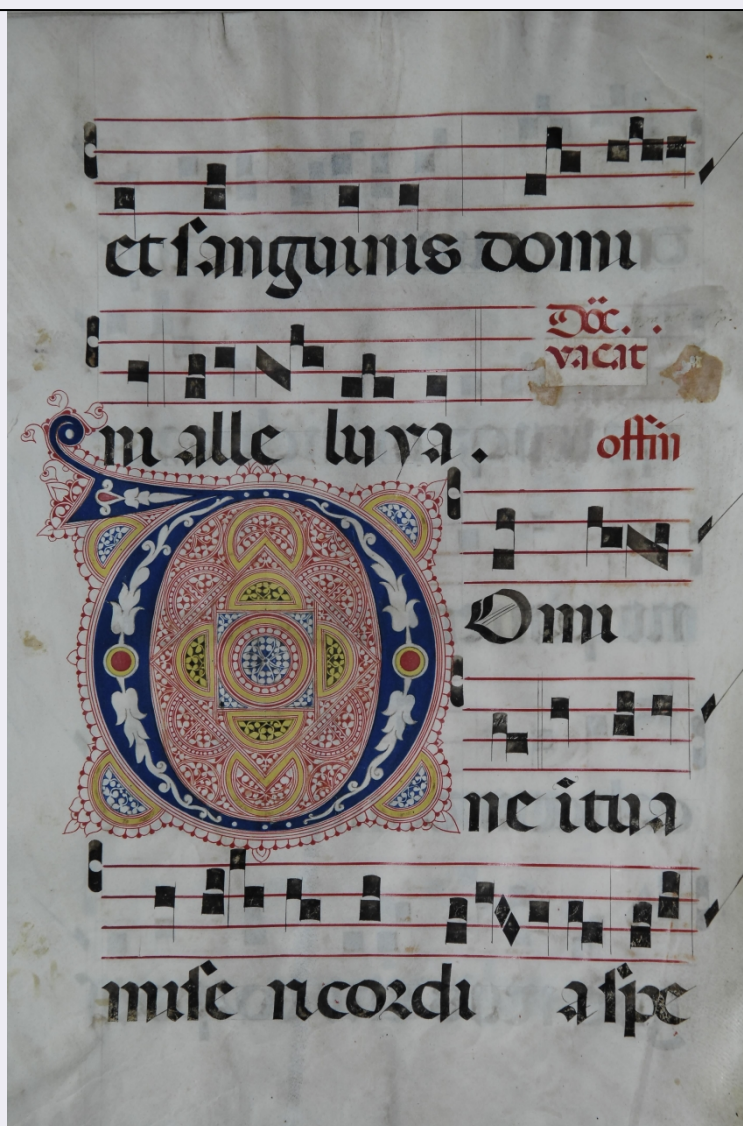 et sanguinis domi
Doc̈. .
vacat
ni alle luya.
offin
Domi
ne i tua
mise ricordi a spe